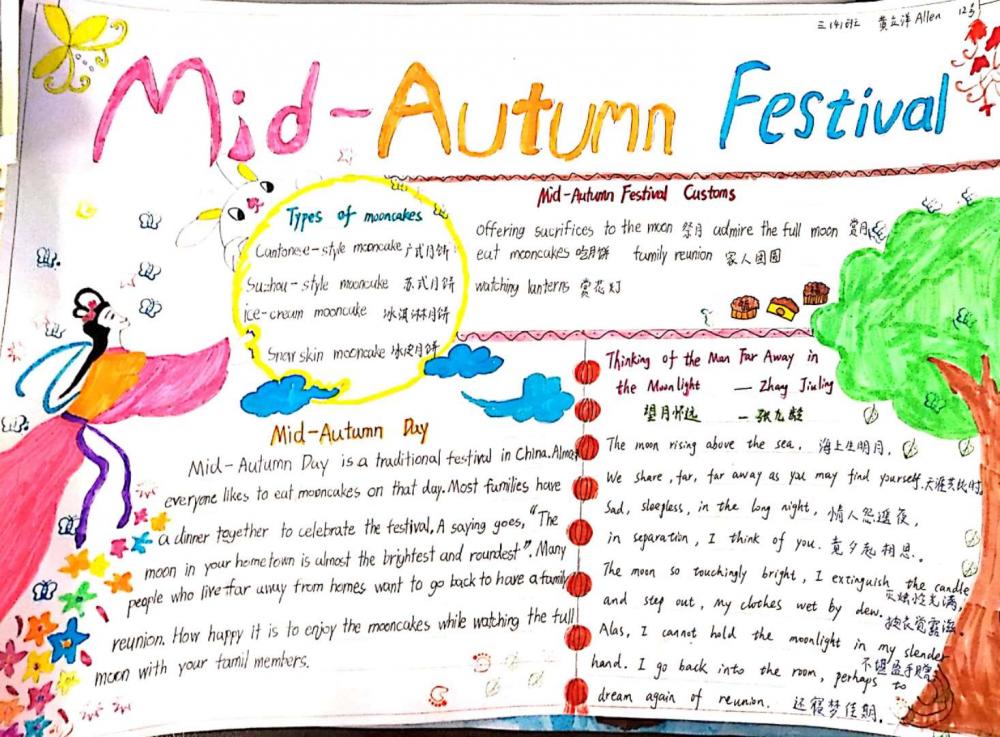 三(4)班 黄立洋 Allen 12号
Mid-Autumn Festival
Types of mooncakes
Cantonese-style mooncake 广式月饼
Suzhou-style mooncake 苏式月饼
ice-cream mooncake 冰淇淋月饼
Snow skin mooncake 冰皮月饼
Mid-Autumn Festival Customs
offering sacrifices to the moon 祭月 admire the full moon 赏月
eat mooncakes 吃月饼 family reunion 家人团圆
watching lanterns 赏花灯
Mid-Autumn Day
Mid-Autumn Day is a traditional festival in China. Almost
everyone likes to eat mooncakes on that day. Most families have
a dinner together to celebrate the festival. A saying goes, "The
moon in your hometown is almost the brightest and roundest". Many
people who live far away from homes want to go back to have a family
reunion. How happy it is to enjoy the mooncakes while watching the full
moon with your famil members.
Thinking of the Man Far Away in
the Moonlight — Zhang Jiuling
望月怀远 - 张九龄
The moon rising above the sea, 海上生明月,
We share, far, far away as you may find yourself. 天涯共此时
Sad, sleepless, in the long night, 情人怨遥夜,
in separation, I think of you. 竟夕起相思.
The moon so touchingly bright, I extinguish the candle
灭烛怜光满,
and step out, my clothes wet by dew. 披衣觉露滋.
Alas, I cannot hold the moonlight in my slender
不堪盈手赠
hand. I go back into the room, perhaps to
dream again of reunion. 还寝梦佳期.